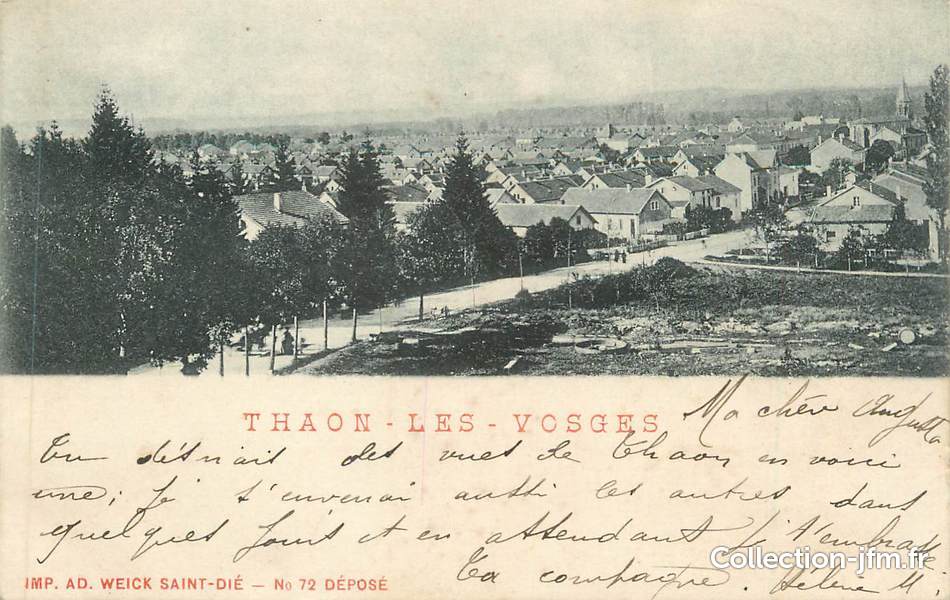 THAON - LES - VOSGES
Ma chér Augusta
Tu désirait des vues de Thaon en voici
une; Je t'enverrai aussi les autres dans
quelques jours et en attendant je t'embrasse
Ta compagne. Hélène M.
IMP. AD. WEICK SAINT-DIÉ — No 72 DÉPOSÉ
Collection-jfm.fr